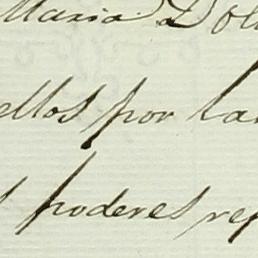 Maria Dol
ellos por la
poderes re